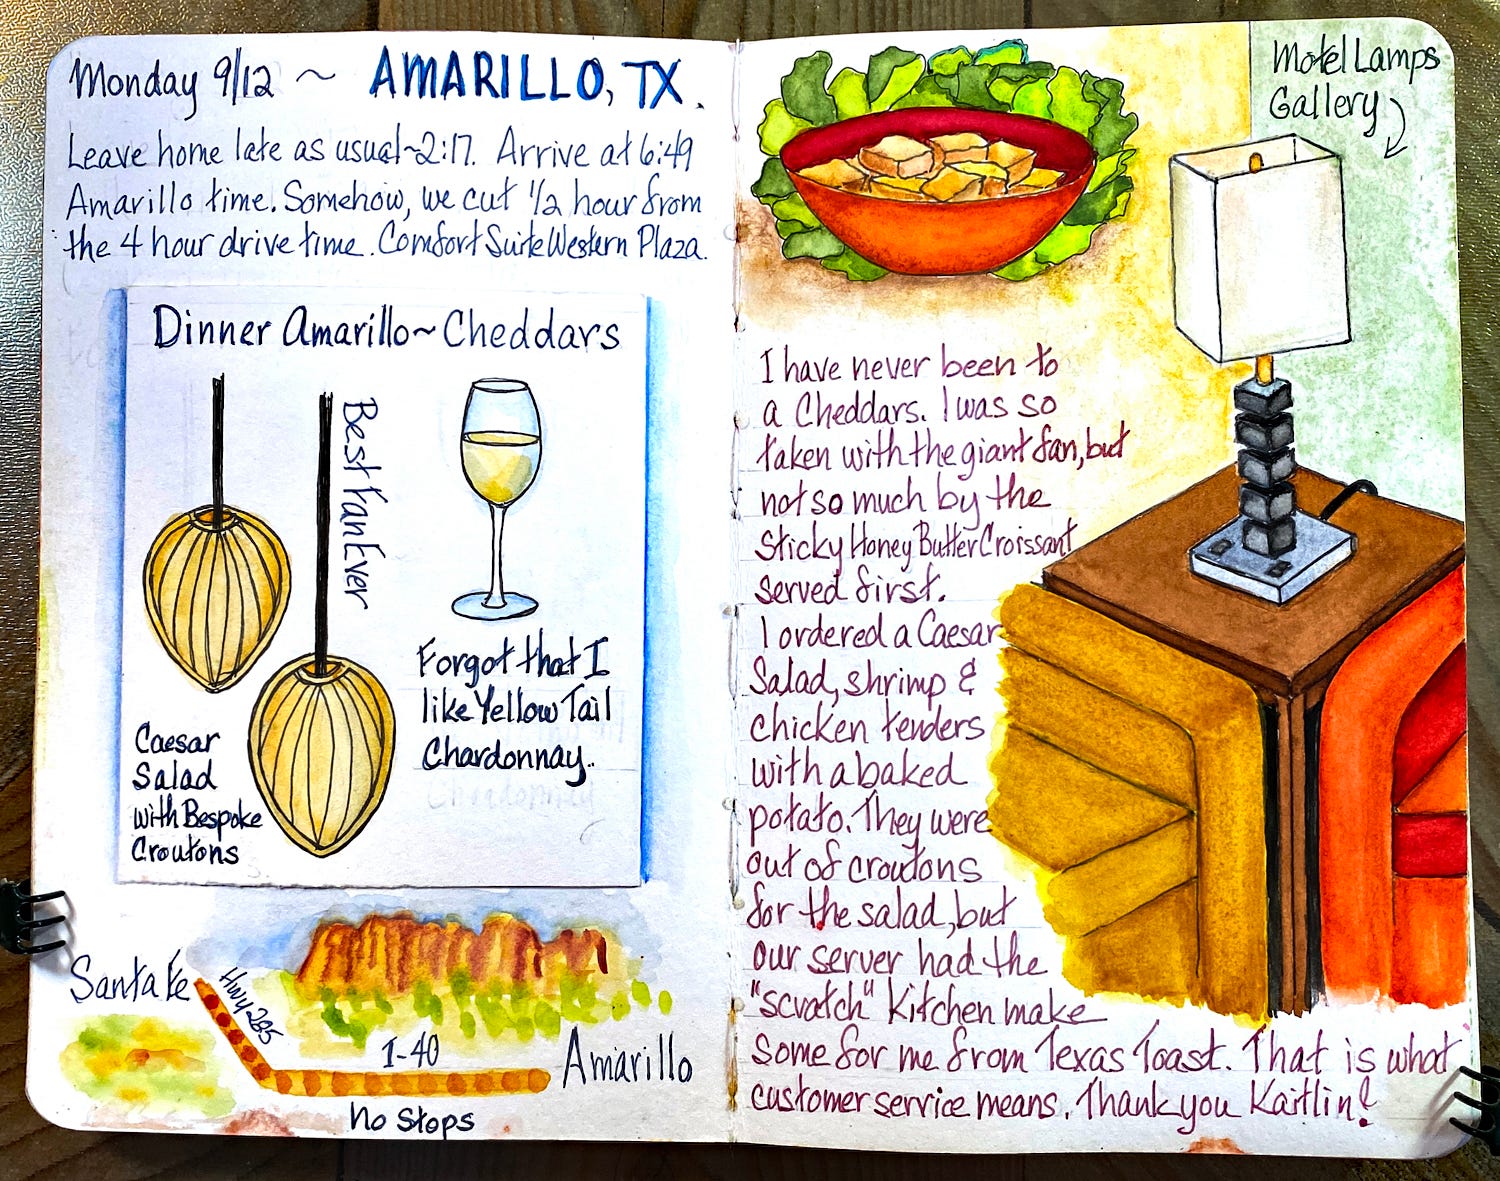 Monday 9/12 ~ AMARILLO, TX.
Leave home late as usual~2:17. Arrive at 6:49
Amarillo time. Somehow, we cut 1/2 hour from
the 4 hour drive time. Comfort Suite Western Plaza.
Dinner Amarillo~Cheddars
Best Fan Ever
Forgot that I
like Yellow Tail
Chardonnay..
Caesar
Salad
with Bespoke
Croutons
Santa Fe
Hwy 285
I-40
Amarillo
No Stops
Motel Lamps
Gallery
I have never been to
a Cheddars. I was so
taken with the giant fan, but
not so much by the
Sticky Honey Butter Croissant
served first.
I ordered a Caesar
Salad, shrimp &
chicken tenders
with a baked
potato. They were
out of croutons
for the salad, but
our server had the
"scratch" kitchen make
some for me from Texas Toast. That is what
customer service means. Thank you Kaitlin!